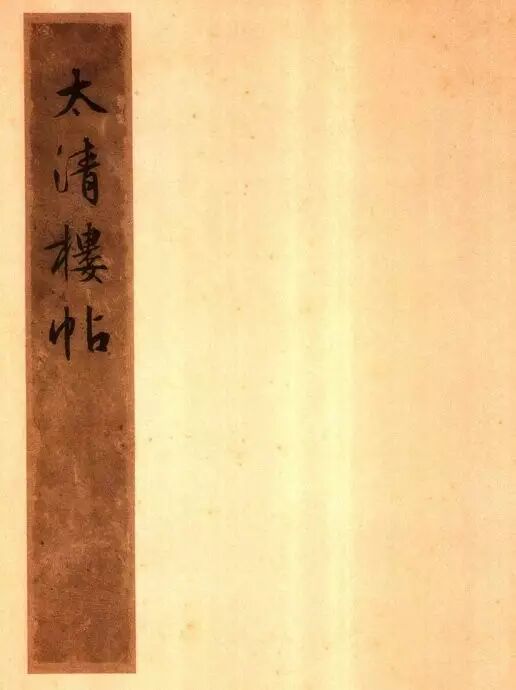 太清樓帖